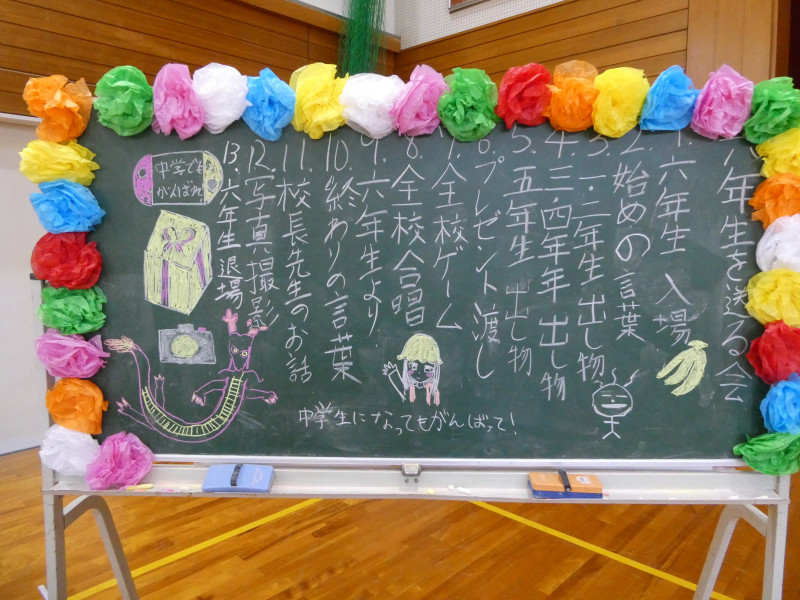 六年生を送る会
1. 六年生 入場
2. 始めの言葉
3. 一・二年生出し物
4. 三・四年年出し物
5. 五年生 出し物
6. プレゼント渡し
7. 全校ゲーム
8. 全校合唱
9. 六年生より
10. 終わりの言葉
11. 校長先生のお話
12. 写真撮影
13. 六年生退場
中学でも
がんばれ
中学生になってもがんばって!